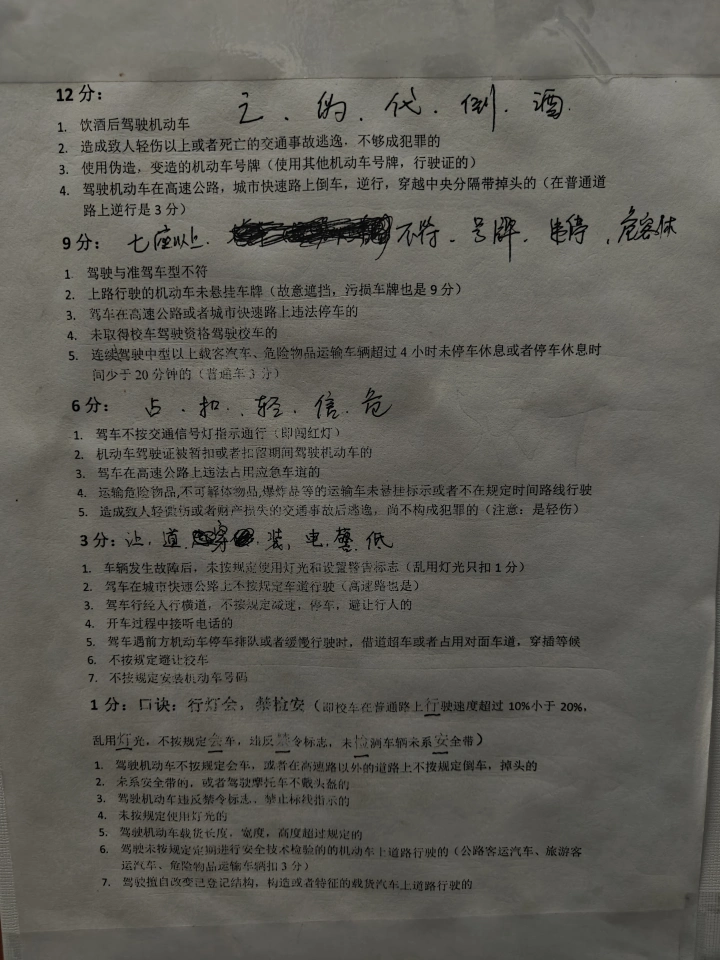 12 分：
亡．伪．代．倒．酒．
1. 饮酒后驾驶机动车
2. 造成致人轻伤以上或者死亡的交通事故逃逸，不够成犯罪的
3. 使用伪造，变造的机动车号牌（使用其他机动车号牌，行驶证的）
4. 驾驶机动车在高速公路，城市快速路上倒车，逆行，穿越中央分隔带掉头的（在普通道
路上逆行是 3 分）
9 分： 七座以上． 不符．号牌，违停，危客休
1. 驾驶与准驾车型不符
2. 上路行驶的机动车未悬挂车牌（故意遮挡，污损车牌也是 9 分）
3. 驾车在高速公路或者城市快速路上违法停车的
4. 未取得校车驾驶资格驾驶校车的
5. 连续驾驶中型以上载客汽车、危险物品运输车辆超过 4 小时未停车休息或者停车休息时
间少于 20 分钟的（普通车 3 分）
6 分： 占．扣．轻．信．危
1. 驾车不按交通信号灯指示通行（即闯红灯）
2. 机动车驾驶证被暂扣或者扣留期间驾驶机动车的
3. 驾车在高速公路上违法占用应急车道的
4. 运输危险物品,不可解体物品,爆炸品等的运输车未悬挂标示或者不在规定时间路线行驶
5. 造成致人轻微伤或者财产损失的交通事故后逃逸，尚不构成犯罪的（注意：是轻伤）
3 分：让，道．穿．装，电，警．低
1. 车辆发生故障后，未按规定使用灯光和设置警告标志（乱用灯光只扣 1 分）
2. 驾车在城市快速公路上不按规定车道行驶（高速路也是）
3. 驾车行经人行横道，不按规定减速，停车，避让行人的
4. 开车过程中接听电话的
5. 驾车遇前方机动车停车排队或者缓慢行驶时，借道超车或者占用对面车道，穿插等候
6. 不按规定避让校车
7. 不按规定安装机动车号码
1 分：口诀：行灯会，禁检安（即校车在普通路上行驶速度超过 10%小于 20%，
乱用灯光，不按规定会车，违反禁令标志，未检测车辆未系安全带）
1. 驾驶机动车不按规定会车，或者在高速路以外的道路上不按规定倒车，掉头的
2. 未系安全带的，或者驾驶摩托车不戴头盔的
3. 驾驶机动车违反禁令标志、禁止标线指示的
4. 未按规定使用灯光的
5. 驾驶机动车载货长度，宽度，高度超过规定的
6. 驾驶未按规定定期进行安全技术检验的的机动车上道路行驶的（公路客运汽车、旅游客
运汽车、危险物品运输车辆扣 3 分）
7. 驾驶擅自改变已登记结构，构造或者特征的载货汽车上道路行驶的